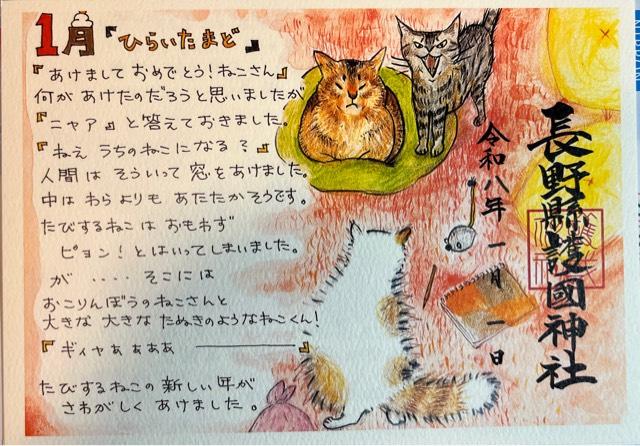 1月 『ひらいたまど』
『あけまして おめでとう！ねこさん』
何が あけたのだろうと思いましたが
『ニャア』と答えておきました。
『ねえ うちのねこになる？』
人間は そういって 窓をあけました。
中は わらよりも あたたかそうです。
たびするねこは おもわず
ピョン！とはいってしまいました。
が ‥‥ そこには
おこりんぼうのねこさんと
大きな 大きな たぬきのようなねこくん！
『ギィヤぁぁぁぁ ────』
たびするねこの 新しい年が
さわがしく あけました。
長野縣護國神社
令和八年 一月 一日